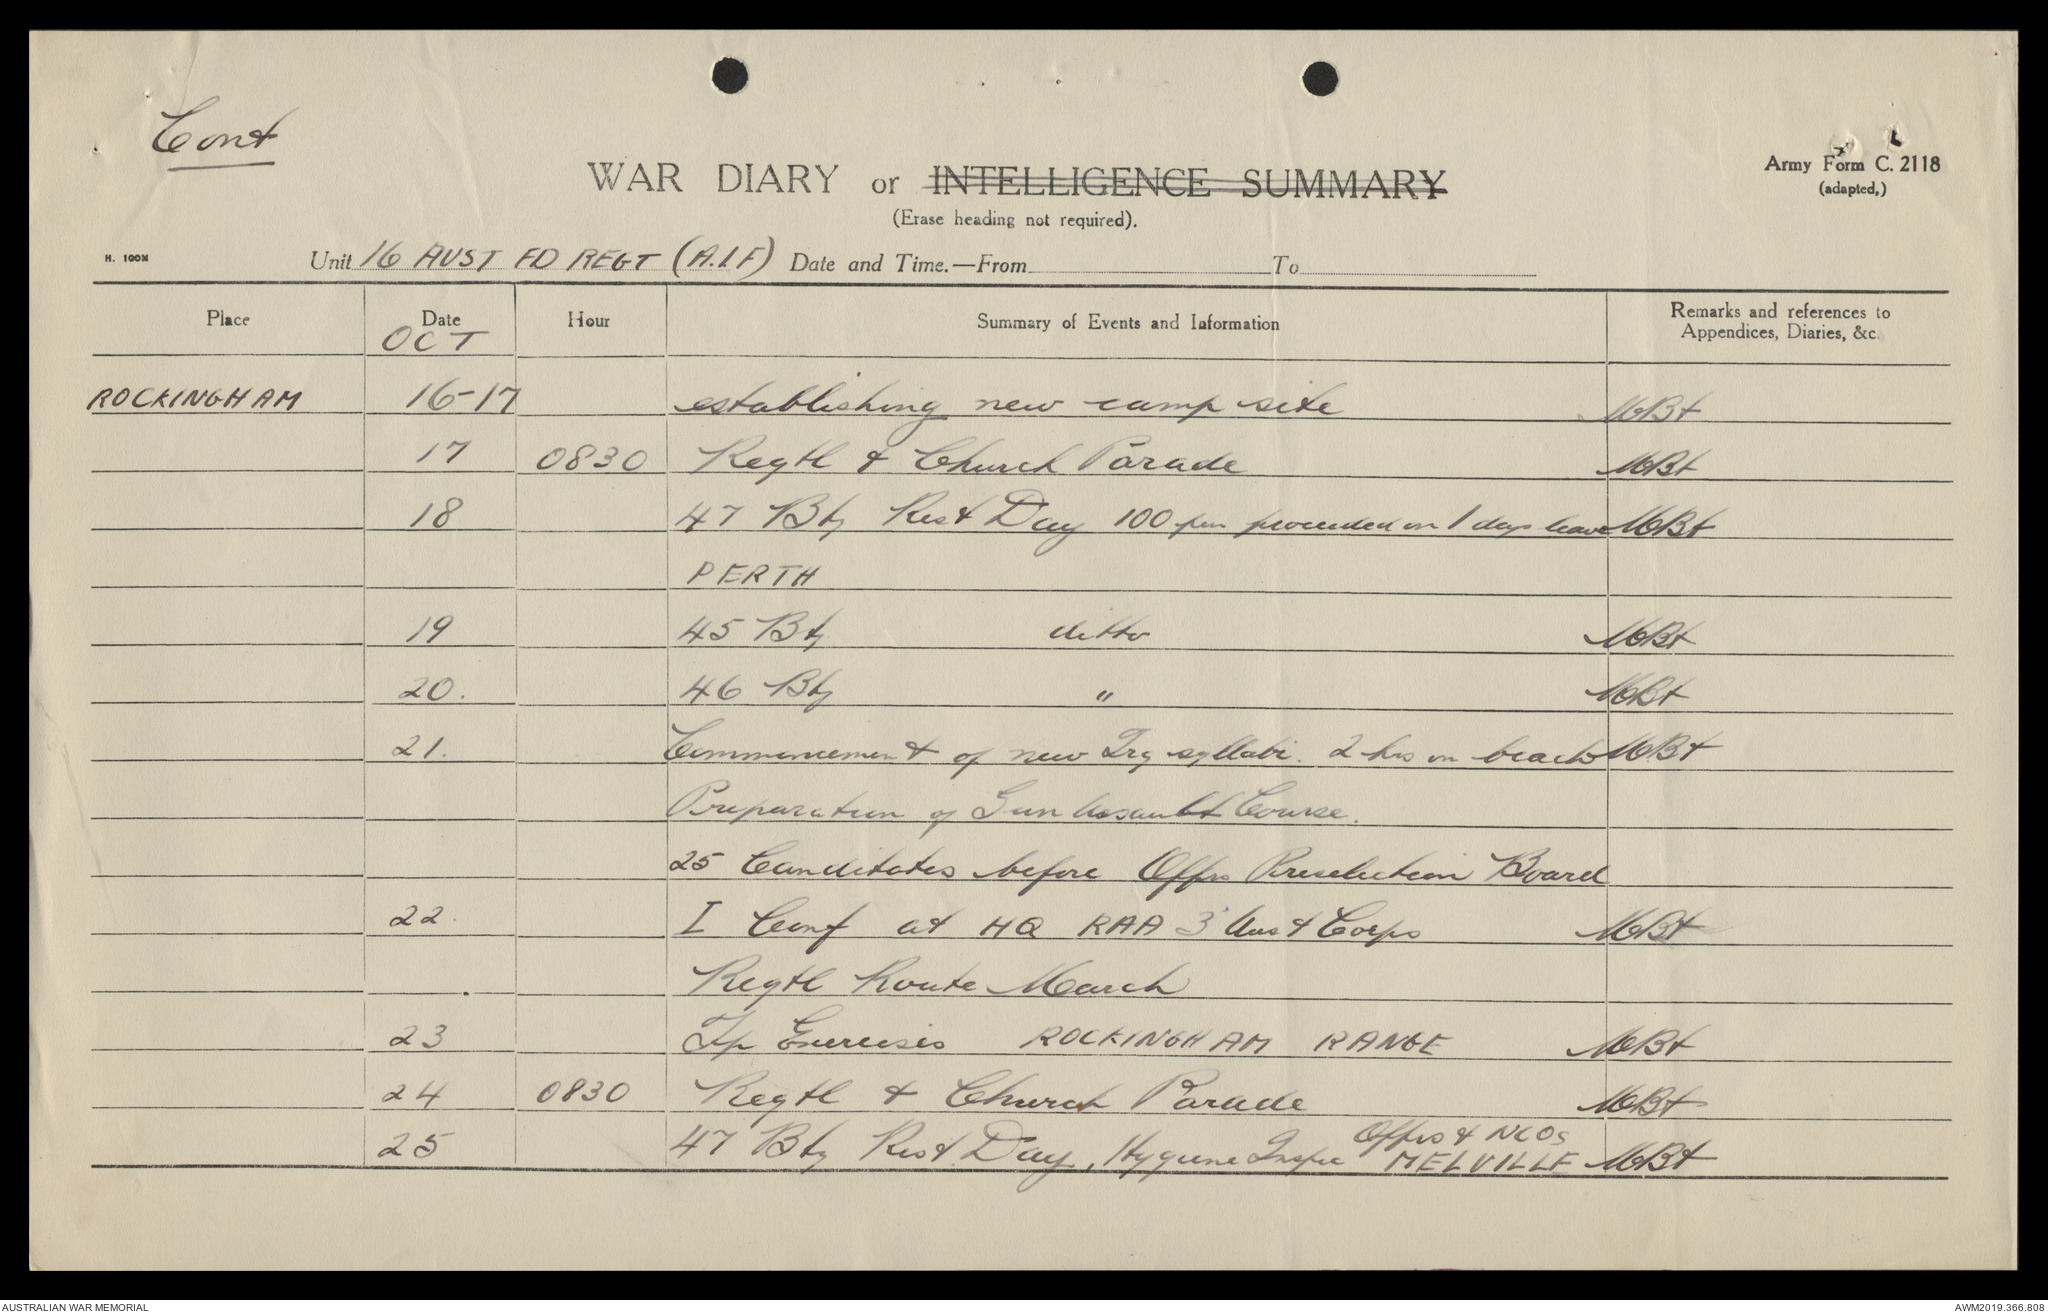 Cont
WAR DIARY or INTELLIGENCE SUMMARY
(Erase heading not required).
Army Form C. 2118
(adapted.)
H. 100M
Unit 16 AUST FD REGT (A.I.F) Date and Time.—From To
Place Date Hour Summary of Events and Information Remarks and references to Appendices, Diaries, &c.
OCT
ROCKINGHAM 16-17 establishing new camp site MBt
17 0830 Regtl & Church Parade MBt
18 47 Bty Rest Day 100 per proceeded on 1 days leave MBt
PERTH
19 45 Bty ditto MBt
20. 46 Bty " MBt
21. Commencement of new Trg syllabi. 2 hrs on beach MBt
Preparation of Gun Assault Course.
25 Canditates before Offrs Preselection Board
22. I Conf at HQ RAA 3 Aust Corps MBt
Regtl Route March
23 Tp Exercises ROCKINGHAM RANGE MBt
24 0830 Regtl & Church Parade MBt
25 47 Bty Rest Day, Hygiene Inspec Offrs & NCOs MELVILLE MBt
AUSTRALIAN WAR MEMORIAL
AWM2019.366.808